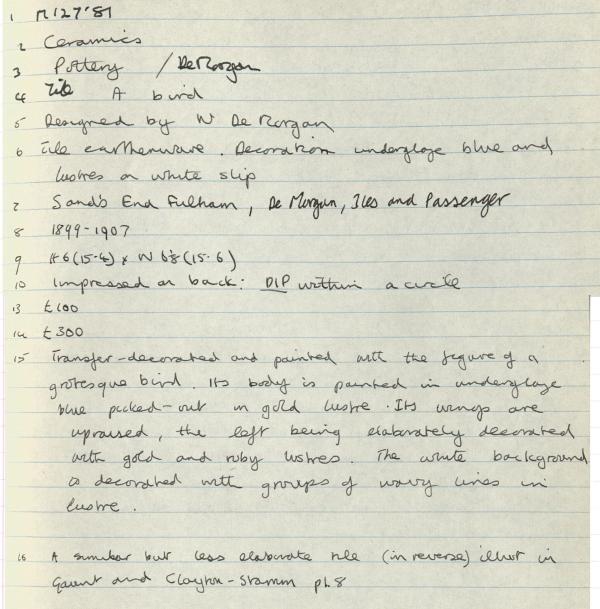 1 M127'81
2 Ceramics
3 Pottery / De Morgan
4 Tile A bird
5 Designed by W De Morgan
6 Tile earthenware. Decoration underglaze blue and
lustres on white slip
7 Sand's End Fulham, De Morgan, Iles and Passenger
8 1899-1907
9 H 6 (15.4) x W 6⅛ (15.6)
10 Impressed on back: DIP within a circle
13 £100
14 £300
15 Transfer-decorated and painted with the figure of a
grotesque bird. Its body is painted in underglaze
blue picked-out in gold lustre. Its wings are
upraised, the left being elaborately decorated
with gold and ruby lustres. The white background
is decorated with groups of wavy lines in
lustre.
16 A similar but less elaborate tile (in reverse) illust in
Gaunt and Clayton-Stamm pl.8